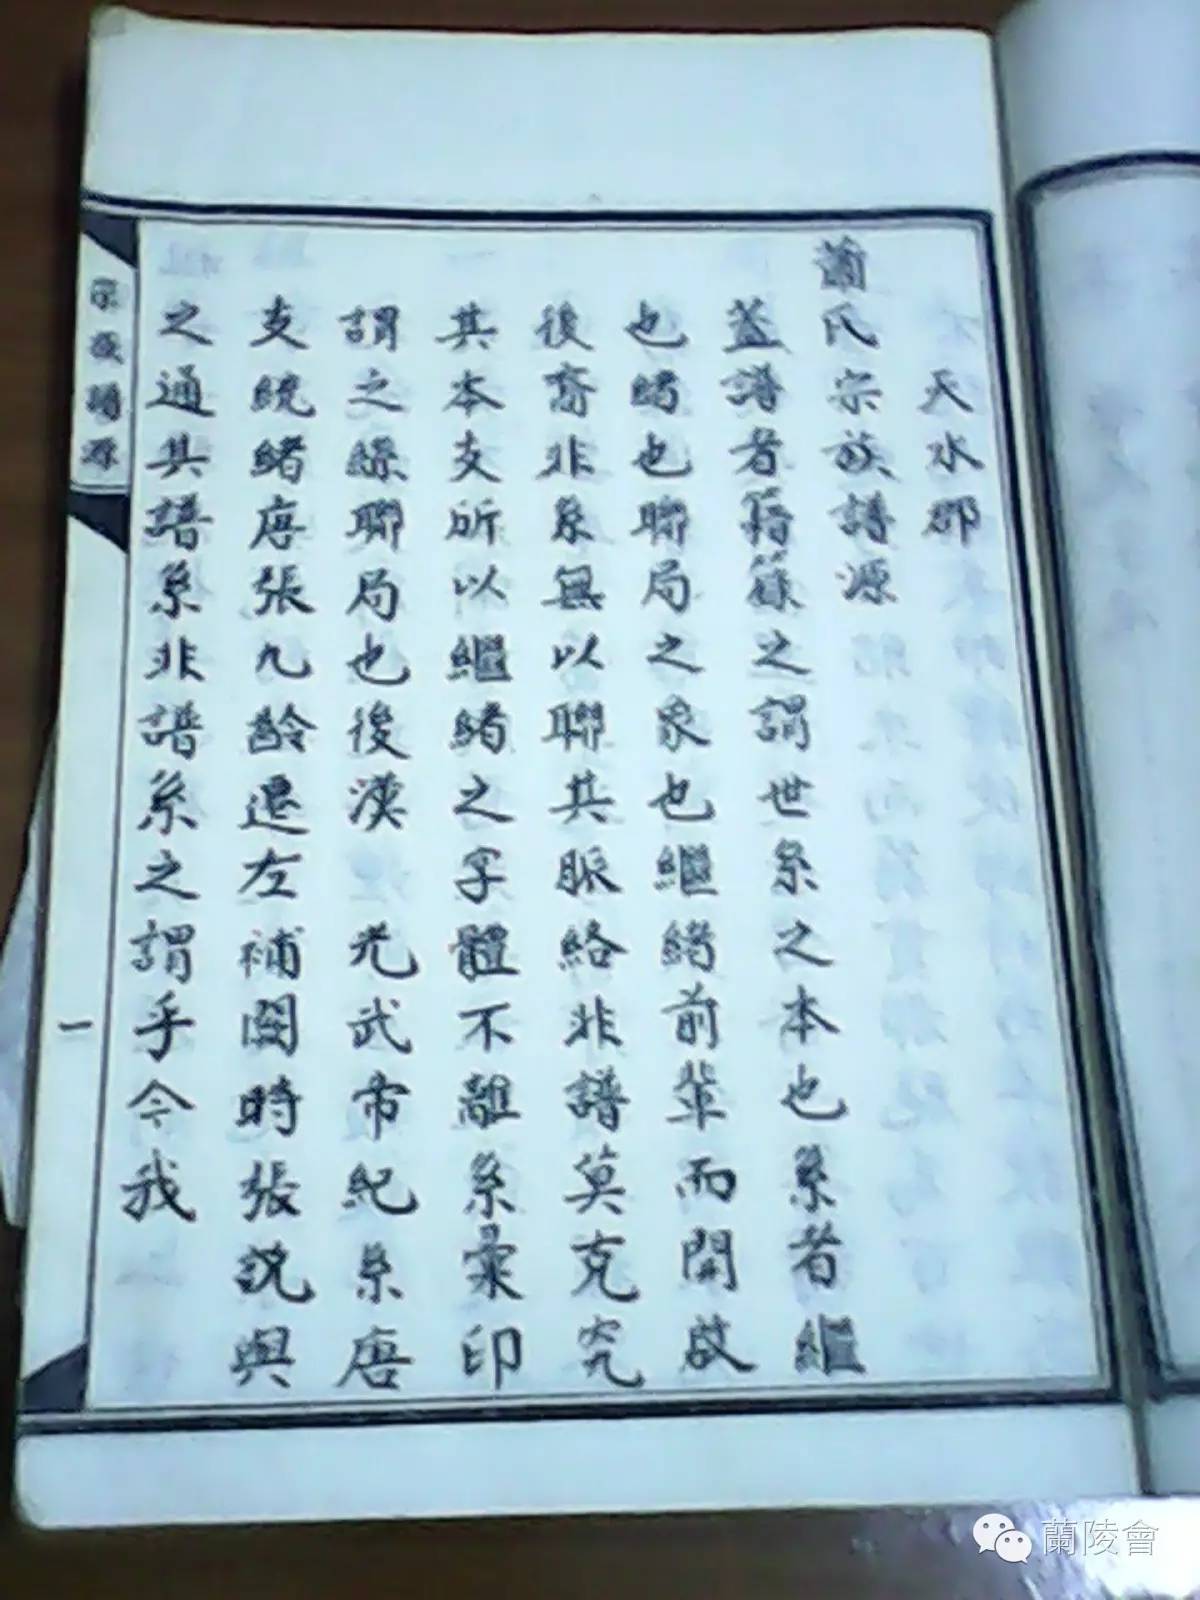 天水郡
蕭氏宗族譜源
蓋譜者籍簶之謂世系之本也系者繼
也緒也聯局之象也繼緒前輩而開啟
後裔非系無以聯其脈絡非譜莫克究
其本支所以繼緒之字體不離系彙印
謂之繇聯局也後漢 光武帝紀系唐
支統緒唐張九齡遷左補闕時張說與
之通其譜系非譜系之謂乎今我
宗族譜源
一
蘭陵會